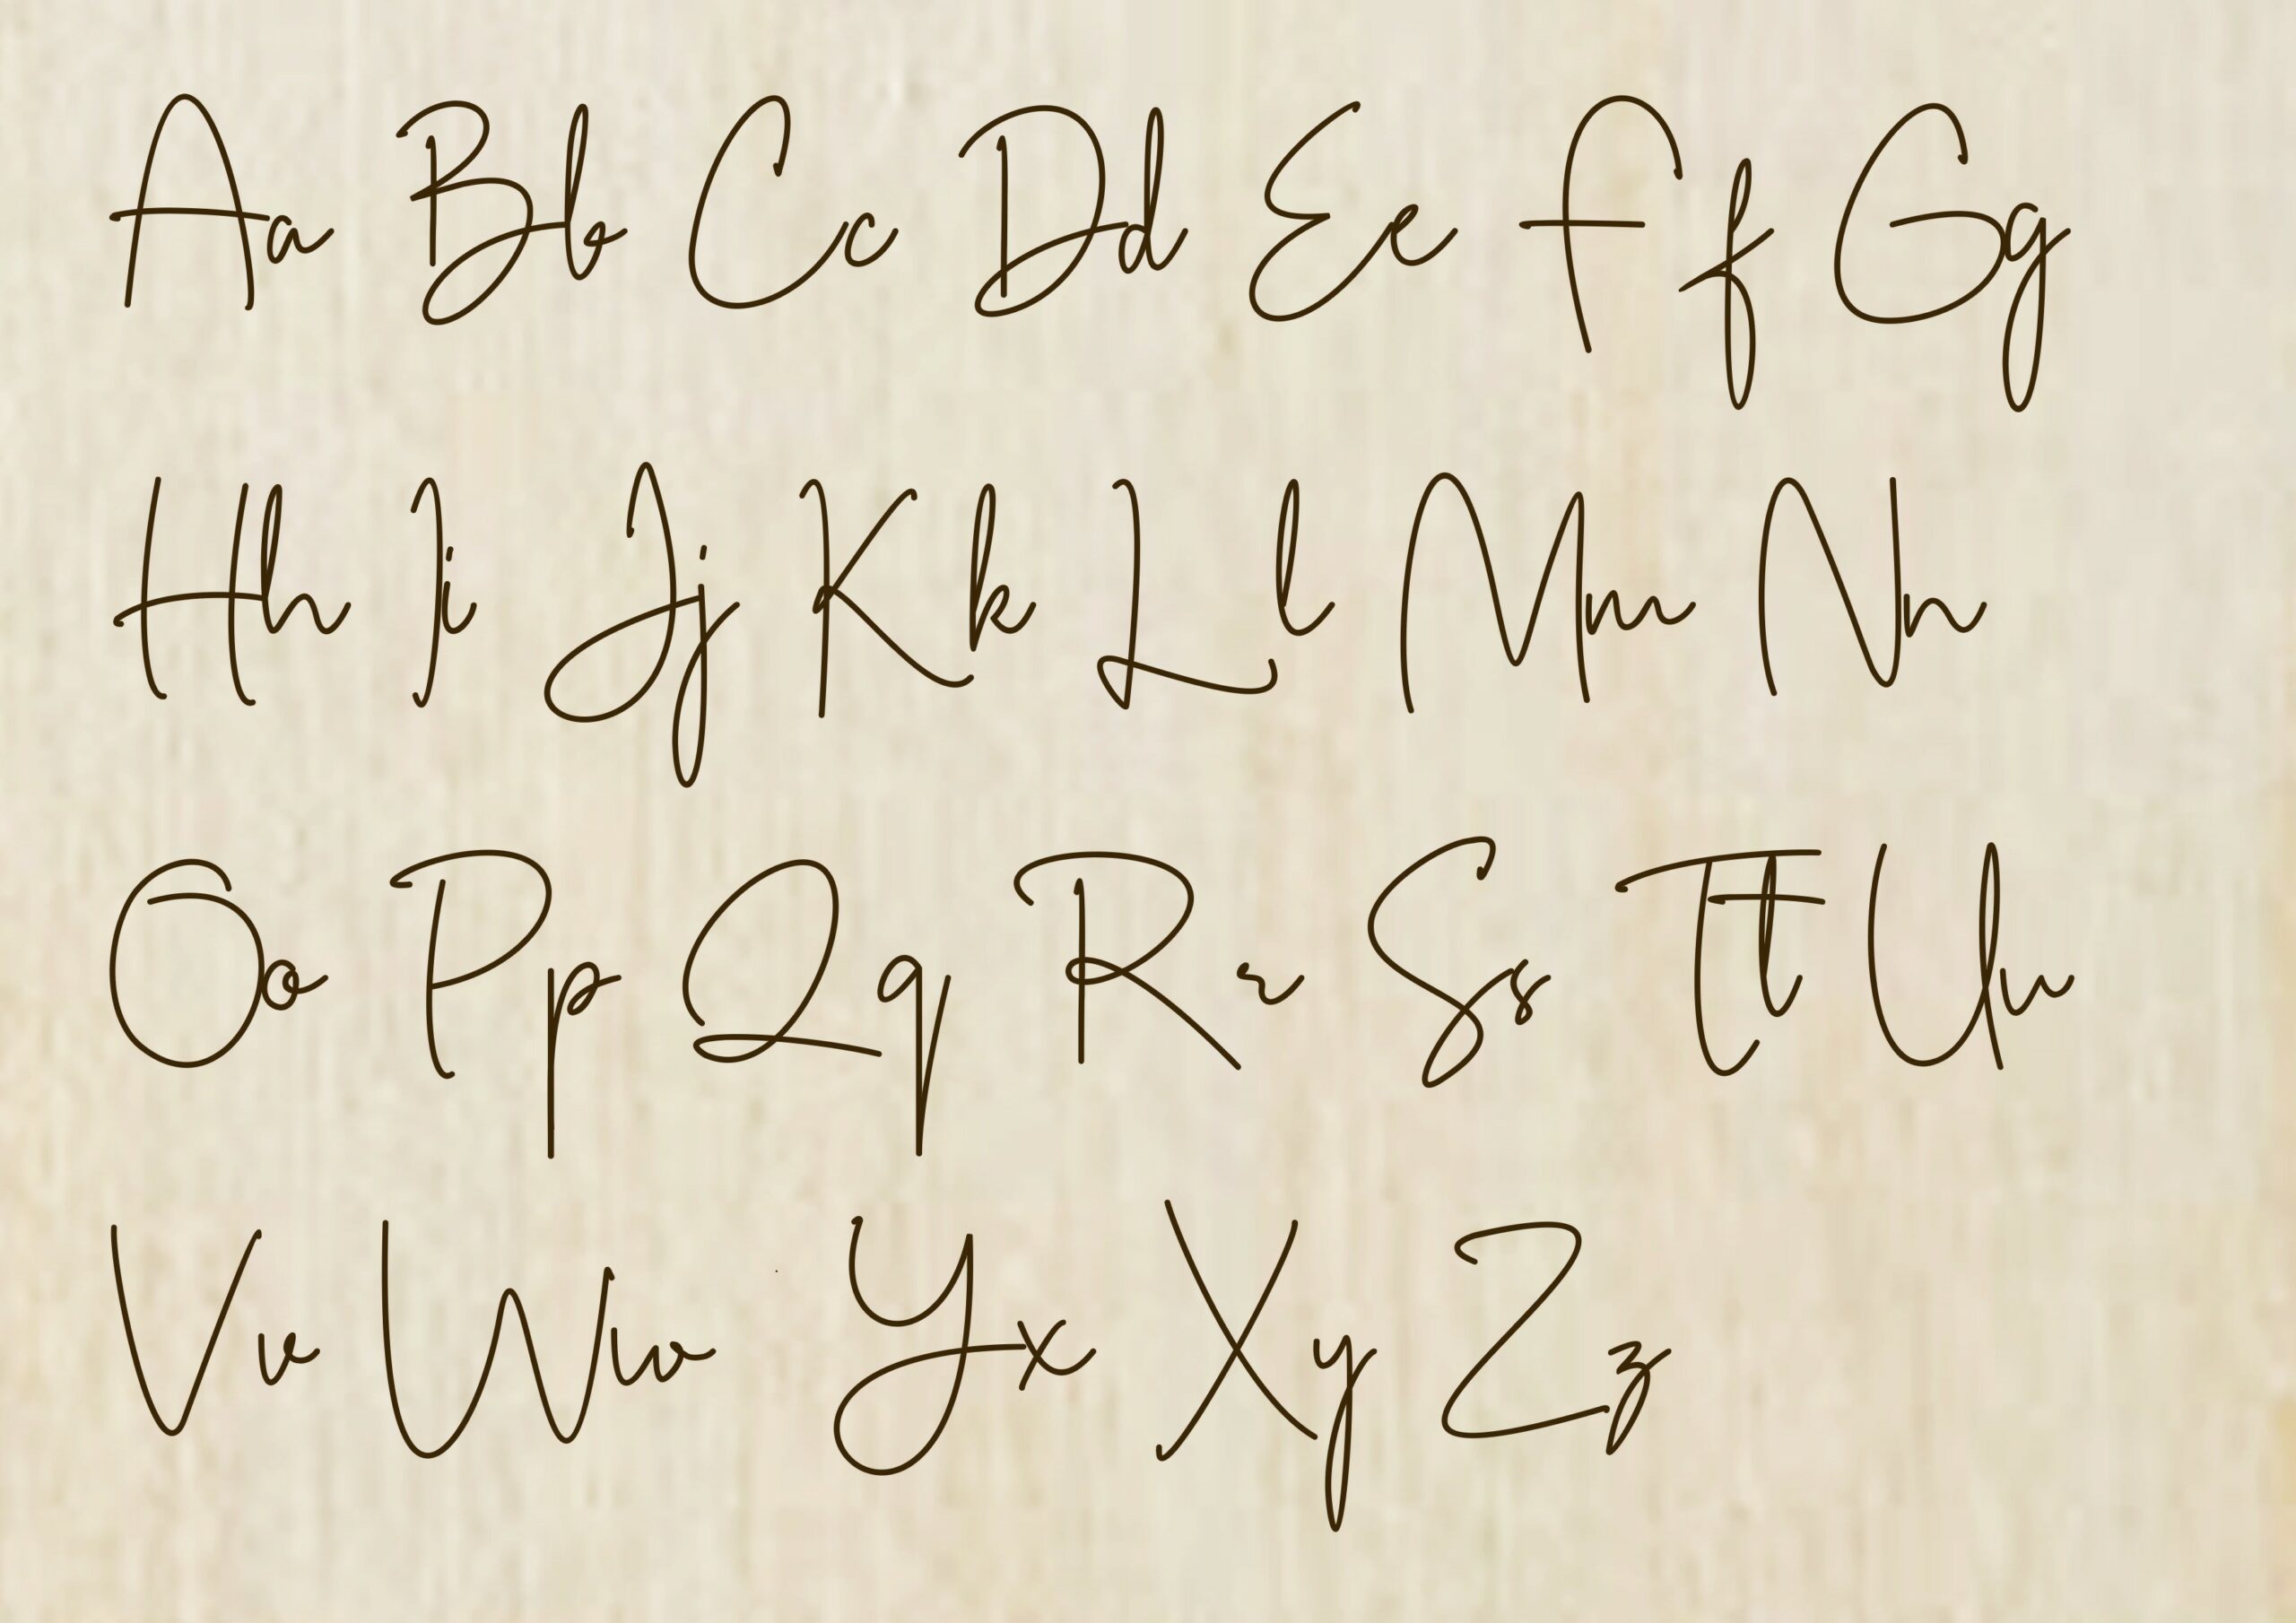 Aa Bb Cc Dd Ee Ff Gg
Hh Ii Jj Kk Ll Mm Nn
Oo Pp Qq Rr Ss Tt Uu
Vv Ww Yx Xy Zz